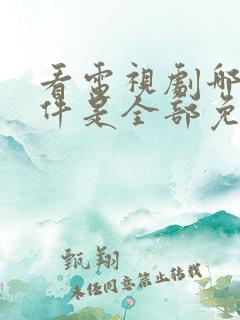 看電視劇哪
件是全部免
甄翔
未經同意禁止轉載